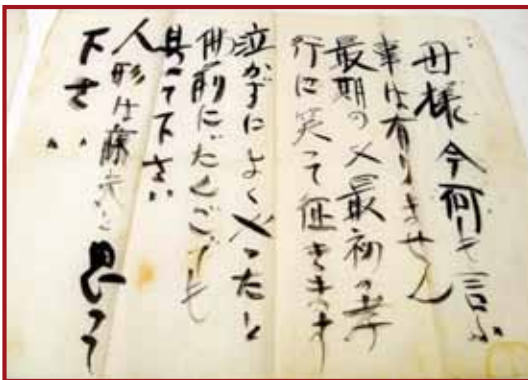 母様 今何も言ふ
事は有りません
最期の又最初の孝
行に笑って征きます
泣かずによくやったと
佛前にだんごでも
具へて下さい
人形は と思って
下さい